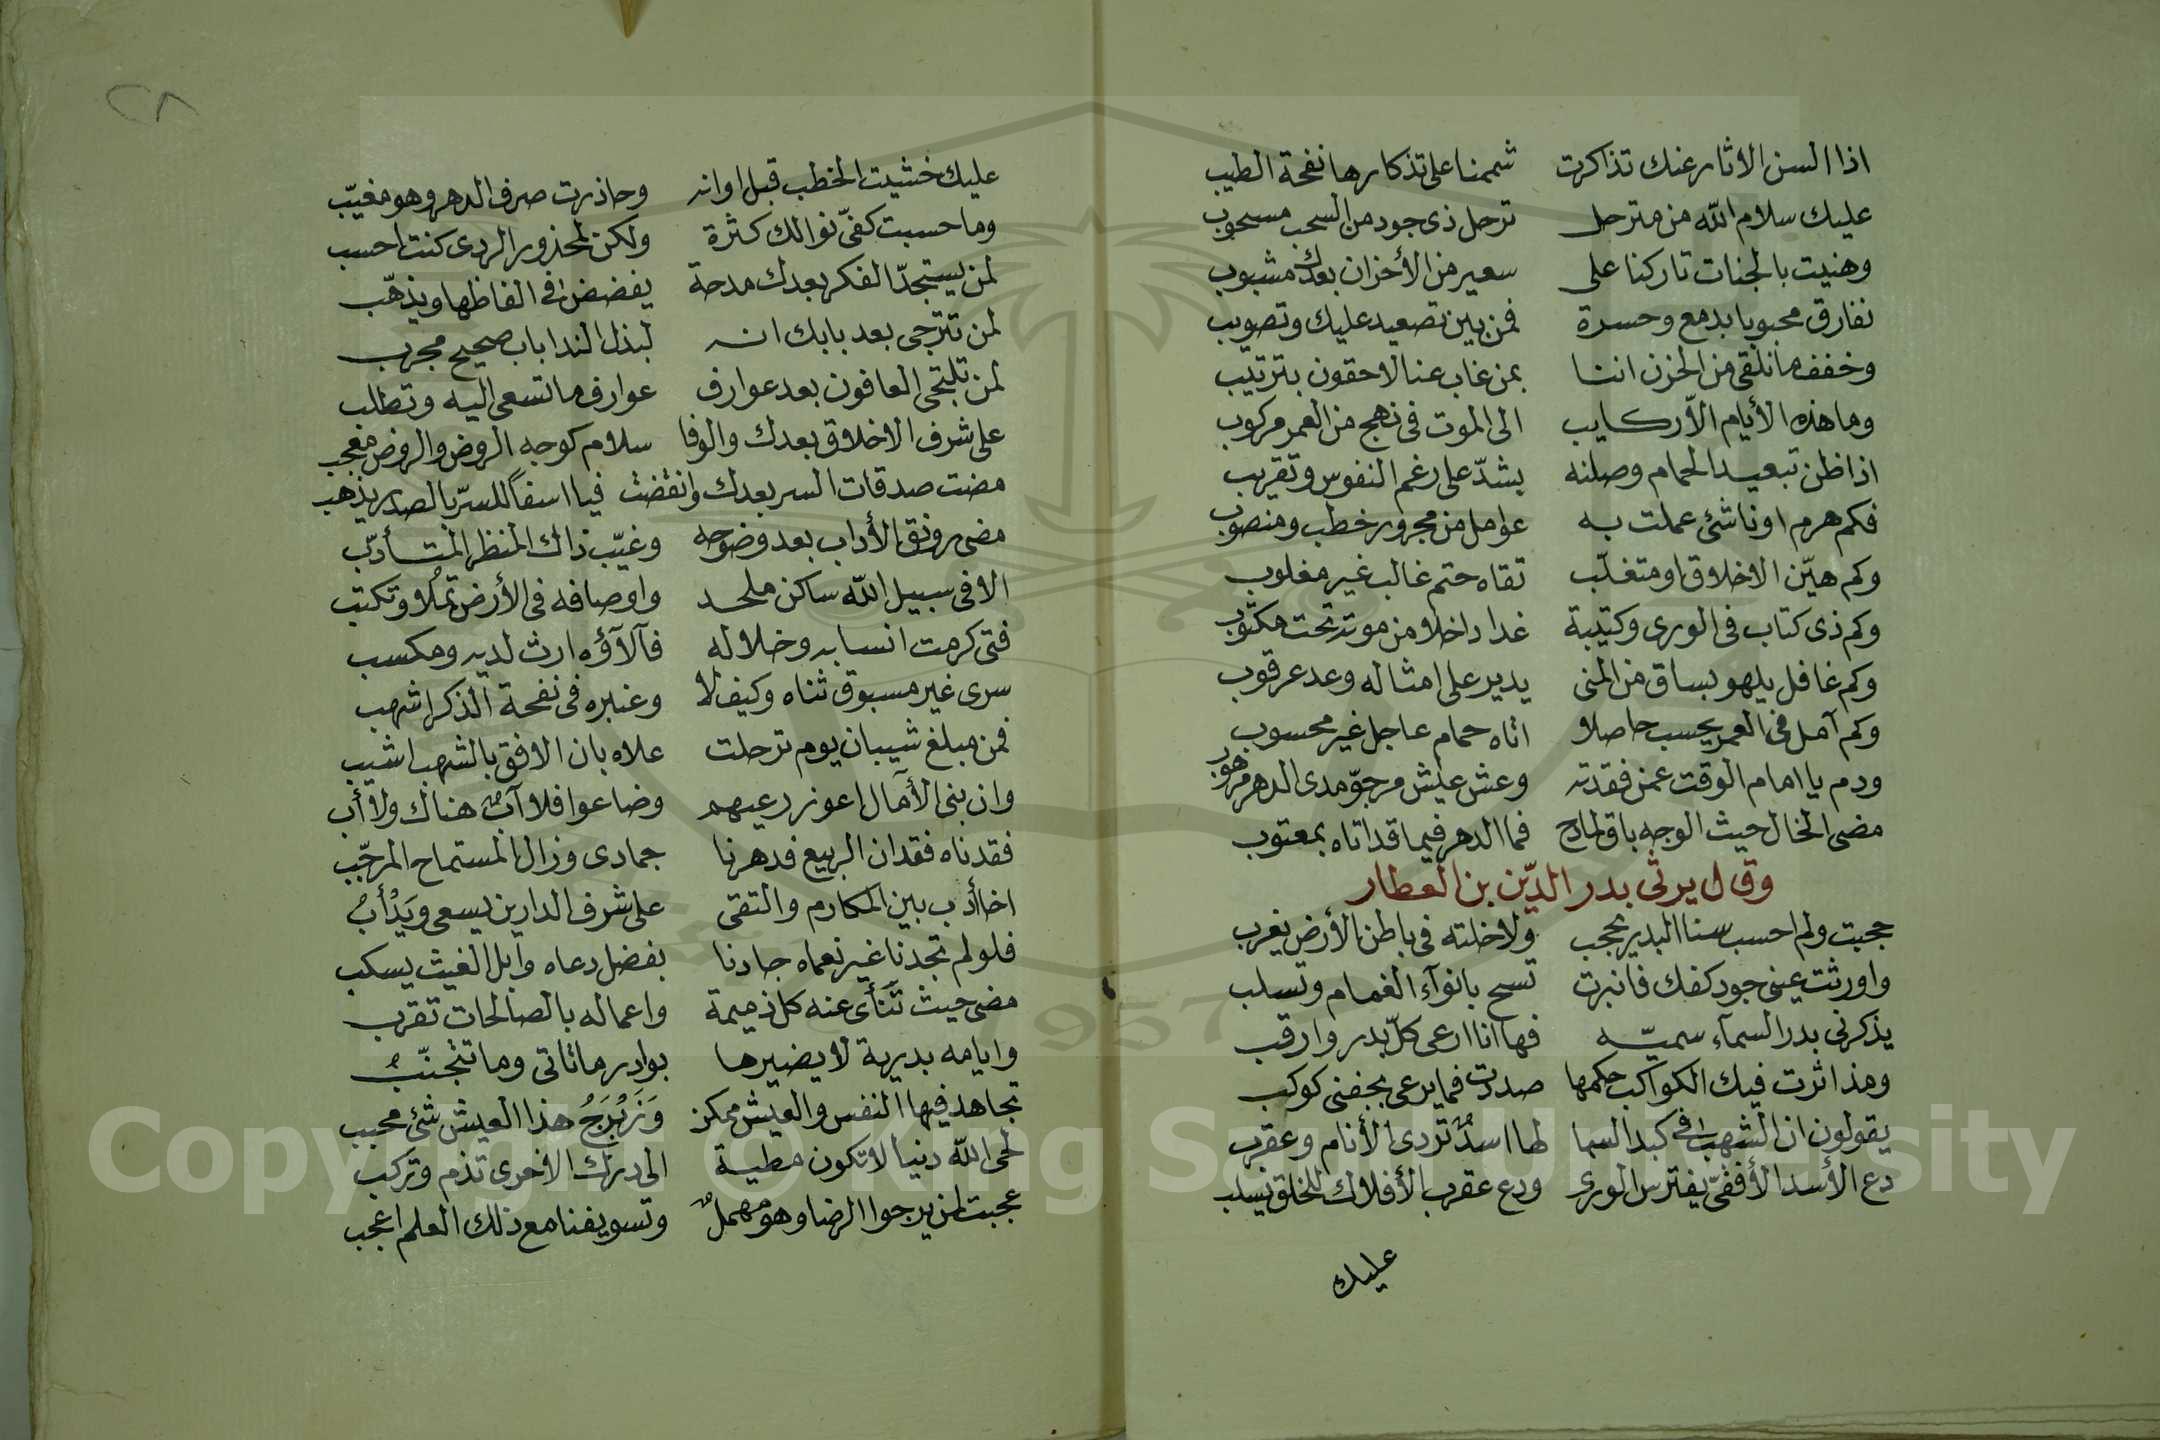 اذا السن الاثار عنك تذاكرت شممنا على تذكارها نفحة الطيب
عليك سلام الله من مترحل ترحل ذى جود من السحب مسحوب
وهنيت بالجنات تاركنا على سعير من الأحزان بعدك مشبوب
نفارق محبوبا بدمع وحسرة فمن بين تصعيد عليك وتصويب
وخفف ما نلقى من الحزن اننا بمن غاب عنا لاحقون بترتيب
وما هذه الأيام الّا ركايب الى الموت فى نهج من العمر مركوب
اذا ظن تبعيد الحمام وصلنه يشدّ على رغم النفوس وتقريب
فكم هرم او ناشئ عملت به عوامل من مجرور خطب ومنصوب
وكم هيّن الاخلاق او متغلّب تقاه حتم غالب غير مغلوب
وكم ذى كتاب فى الورى وكتيبة غدا داخلا من موته تحت مكتوب
وكم غافل يلهو بساق من المنى يدير على امثاله وعد عرقوب
وكم آمل فى العمر يحسب حاصلا اتاه حمام عاجل غير محسوب
ودم يا امام الوقت عمن فقدته وعش عيش مرجوّ مدى الدهر مرهوب
مضى الخال حيث الوجه باق لمادح فما الدهر فيما قد اتاه بمعتوب
وقال يرثى بدر الدّين بن العطار
حجبت ولم احسب سنا البدر يحجب ولا خلته فى باطن الأرض يغرب
واورثت عينى جود كفك فانبرت تسح بانوآء الغمام وتسلب
يذكرنى بدر السمآء سميّه فها انا ارعى كلّ بدر وارقب
ومذ اثرت فيك الكواكب حكمها صددت فما يرعى بجفنى كوكب
يقولون ان الشهب فى كبد السما لها اسدٌ تردى الأنام وعقرب
دع الأسد الأفقىّ يفترس الورى ودع عقرب الأفلاك للخلق تسلب
عليك
٢٨
عليك خشيت الخطب قبل اوانه وحاذرت صرف الدهر وهو مغيّب
وما حسبت كفىّ نوالك كثرة ولكن لمحذور الردى كنت احسب
لمن يستجدّ الفكر بعدك مدحة يفضض فى الفاظها ويذهّب
لمن تترجى بعد بابك انه لبذل الندا باب صحيح مجرب
لمن تلتجى العافون بعد عوارف عوارف ما تسعى اليه وتطلب
على شرف الاخلاق بعدك والوفا سلام كوجه الروض والروض معجب
مضت صدقات السر بعدك وانقضت فيا اسفاً للسرّ بالصدر يذهب
مضى رونق الأداب بعد وضوحه وغيّب ذاك المنظر المتأدّب
الا فى سبيل الله ساكن ملحد واوصافه فى الأرض تملا وتكتب
فتى كرمت انسابه وخلاله فآلآؤه ارث لديه ومكسب
سرى غير مسبوق ثناه وكيف لا وعنبره فى نفحة الذكر اشهب
فمن مبلغ شيبان يوم ترحلت علاه بان الافق بالشهب اشيب
وان بنى الأمال اعوز رعيهم وضاعوا فلا آبٌ هناك ولا أب
فقدناه فقدان الربيع فدهرنا جمادى وزال المستماح المرجّب
اخا أدب بين المكارم والتقى على شرف الدارين يسعى ويَدْأبُ
فلو لم تجدنا غير نعماه جادنا بفضل دعاه وابل الغيث يسكب
مضى حيث تنأى عنه كل ذميمة واعماله بالصالحات تقرب
وايامه بدرية لا يضيرها بوادر ما تاتى وما تتجنّبُ
تجاهد فيها النفس والعيش ممكن وَزَبْرَجُ هذا العيش شئ محبب
لحى الله دنيا لا تكون مطية الى درك الاخرى تذم وتركب
عجبت لمن يرجوا الرضا وهو مهملٌ وتسويفنا مع ذلك العلم اعجب
Copyright © King Saud University
1957